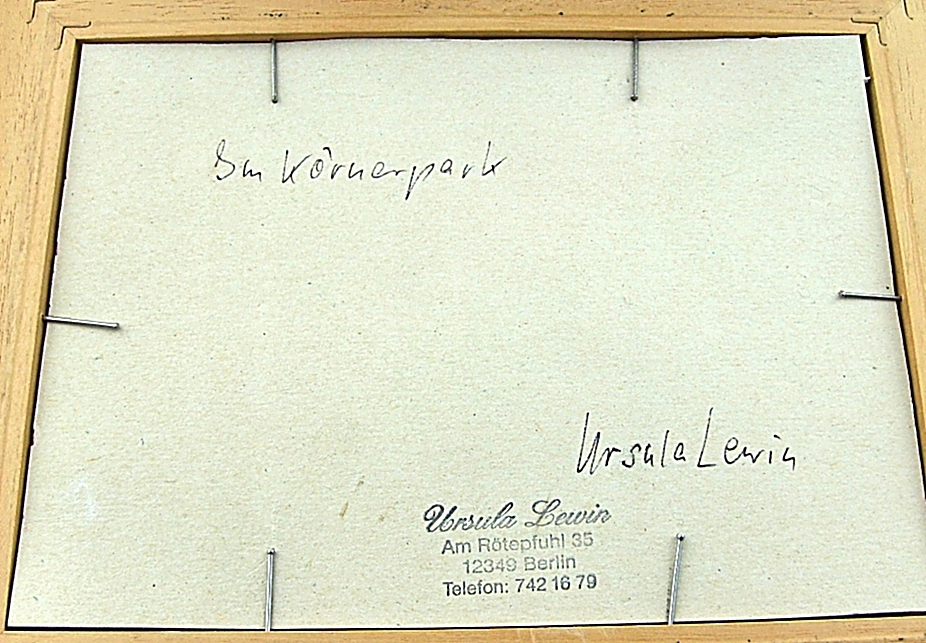 Im Körnerpark
Ursula Lewin
Ursula Lewin
Am Rötepfuhl 35
12349 Berlin
Telefon: 742 16 79